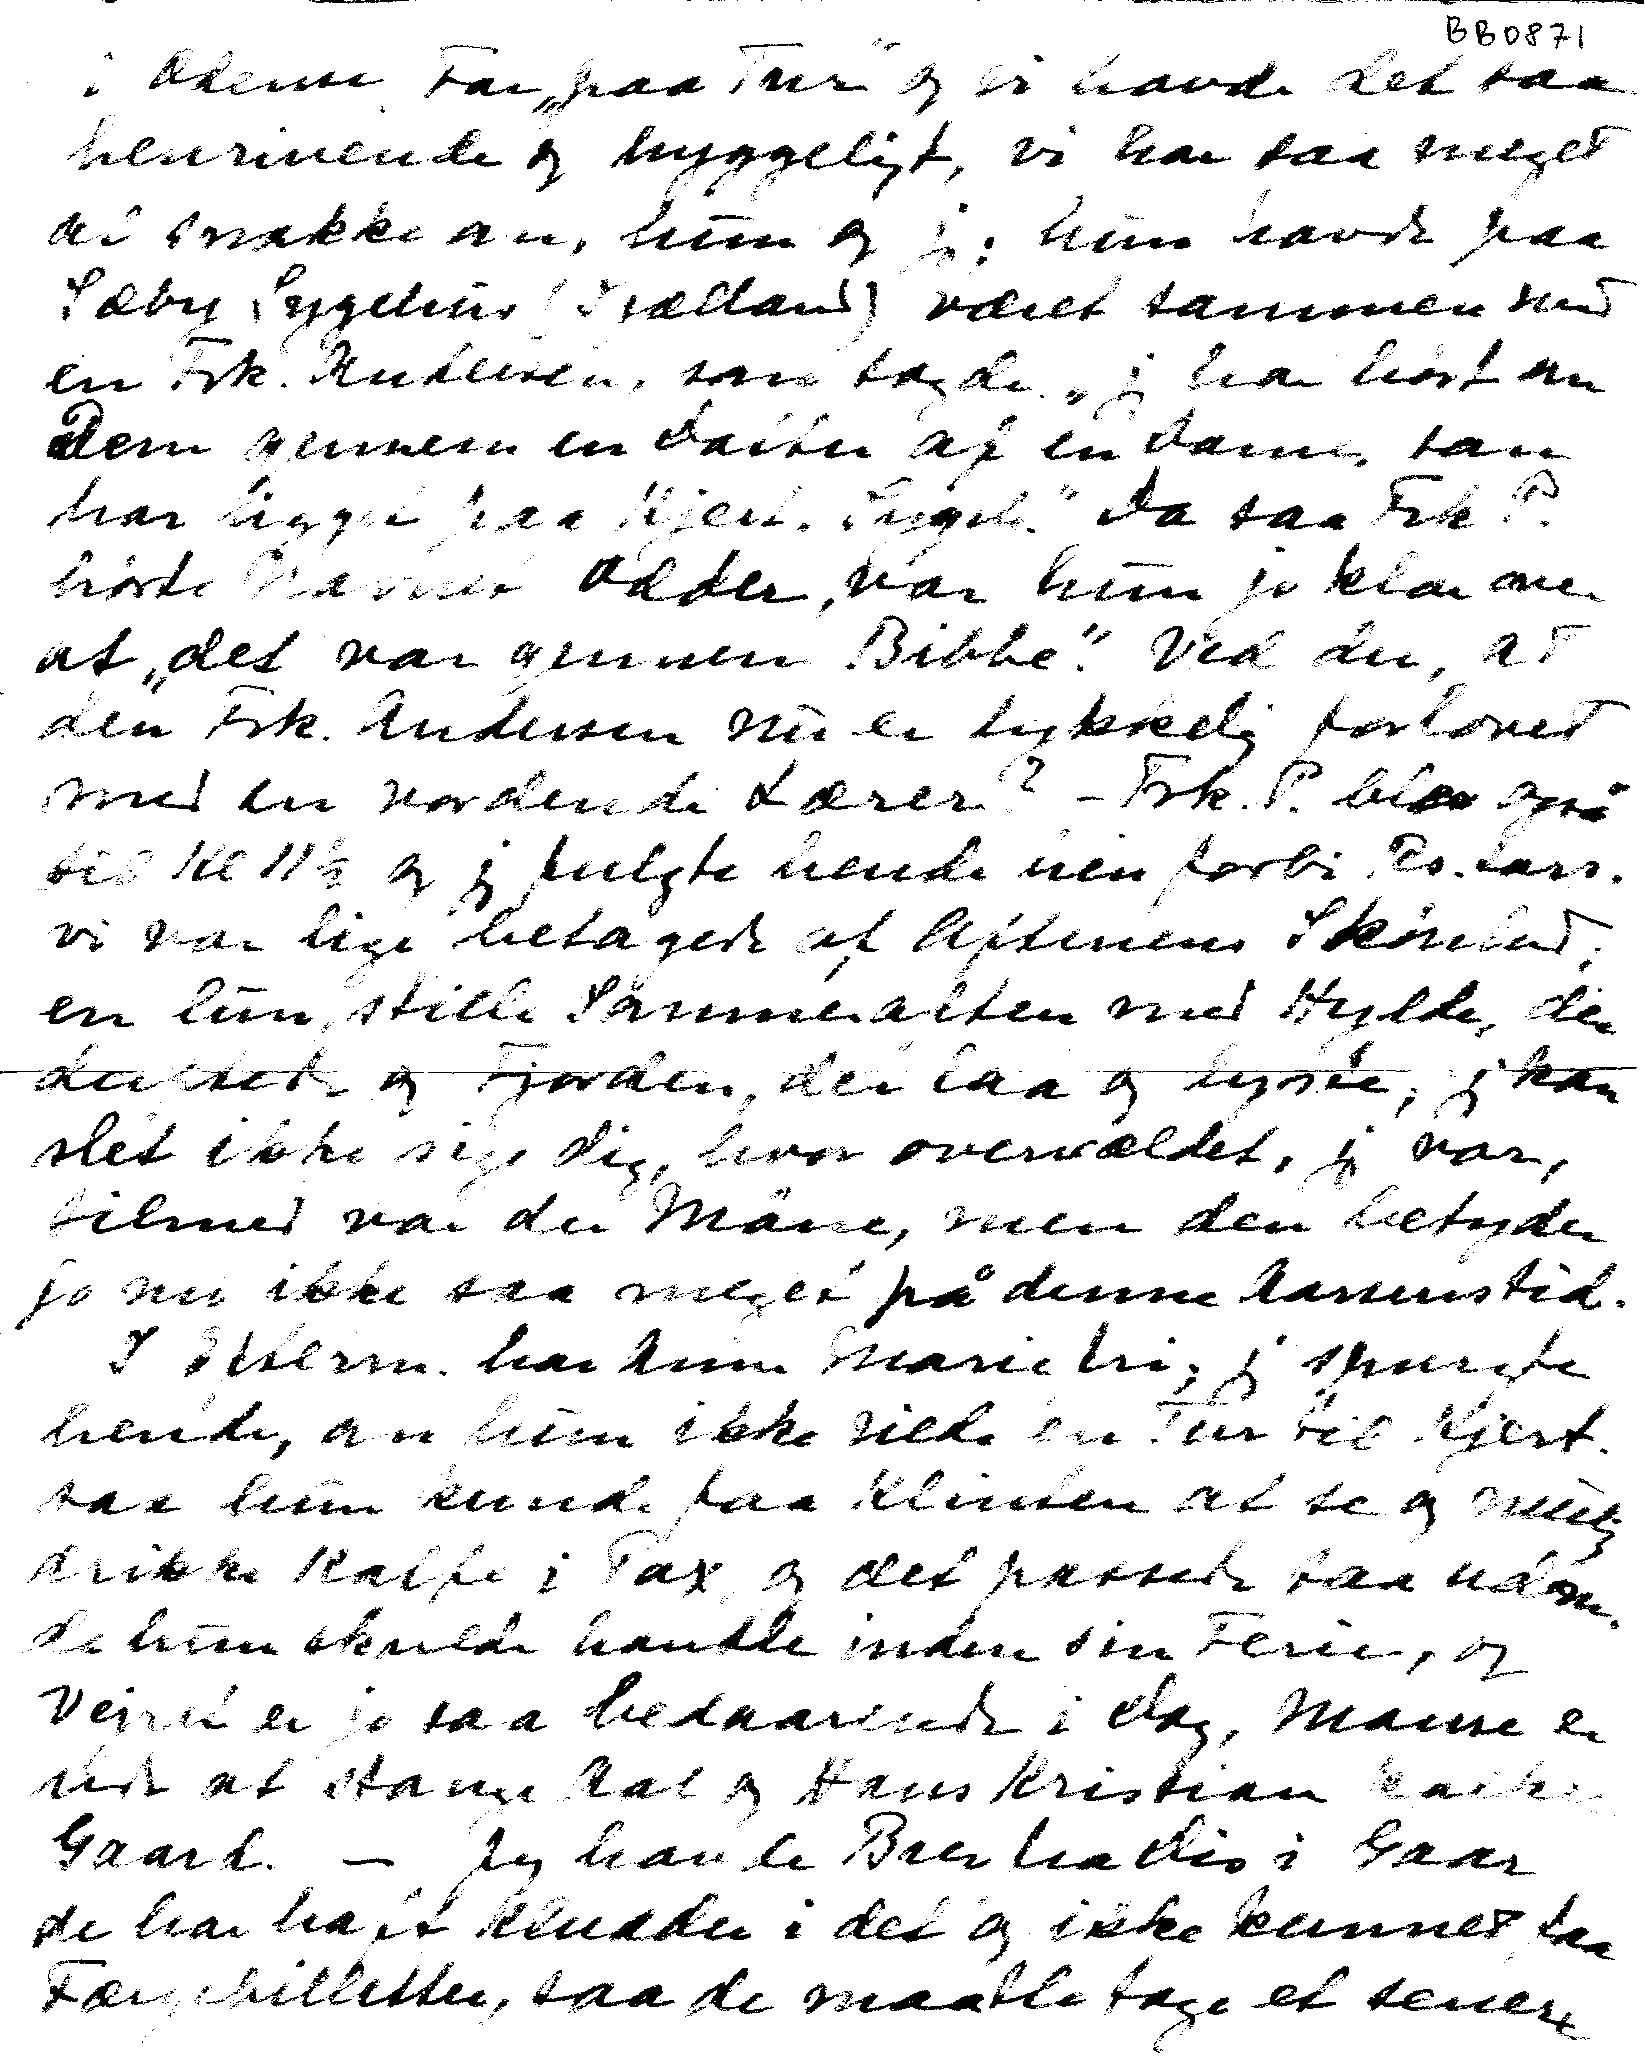 BB0871
i Odense, Far „paa Tur" og vi havde det saa
henrivende og hyggeligt, vi har saa meget
at snakke om, hun og jeg; hun havde paa
Sæby Sygehus (Sjælland) været sammen med
en Frk. Andersen, som sagde „jeg har hørt om
Dem gennem en Datter af en Dame, som
har ligget paa Kjert. Sygeh." Da saa Frk P.
hørte Navnet Odder, var hun jo klar over
at „det var gennem Bibbe". Ved du, at
den Frk. Andersen nu er lykkelig forlovet
med en vordende Lærer? – Frk. P. blev også
til Kl 11½ og jeg fulgte hende hen forbi Ps. Lars.
vi var lige betagede af Aftenens Skønhed;
en lun, stille Sommeraften med Hylde, der
duftede og Fjorden, der laa og lyste, jeg kan
slet ikke sige dig, hvor overvældet, jeg var,
tilmed var der Måne, men den betyder
jo nu ikke saa meget på denne Aarsenstid.
I Efterm. har Anne Marie fri; jeg spurgte
hende, om hun ikke vilde en Tur til Kjert.
saa hun kunde faa Klinten at se og mulig
drikke Kaffe i Pax, og det passede saa udm.
da hun skulde handle inden sin Ferie, og
Vejret er jo saa bedaarende i Dag, Manse er
ude at stange Aal og Hans Kristian
Gaard. — Jeg havde Brev fra Dis i Gaar
de har haft Kludder i det og ikke kunnet faa
Færgebilletter, saa de maatte tage et senere